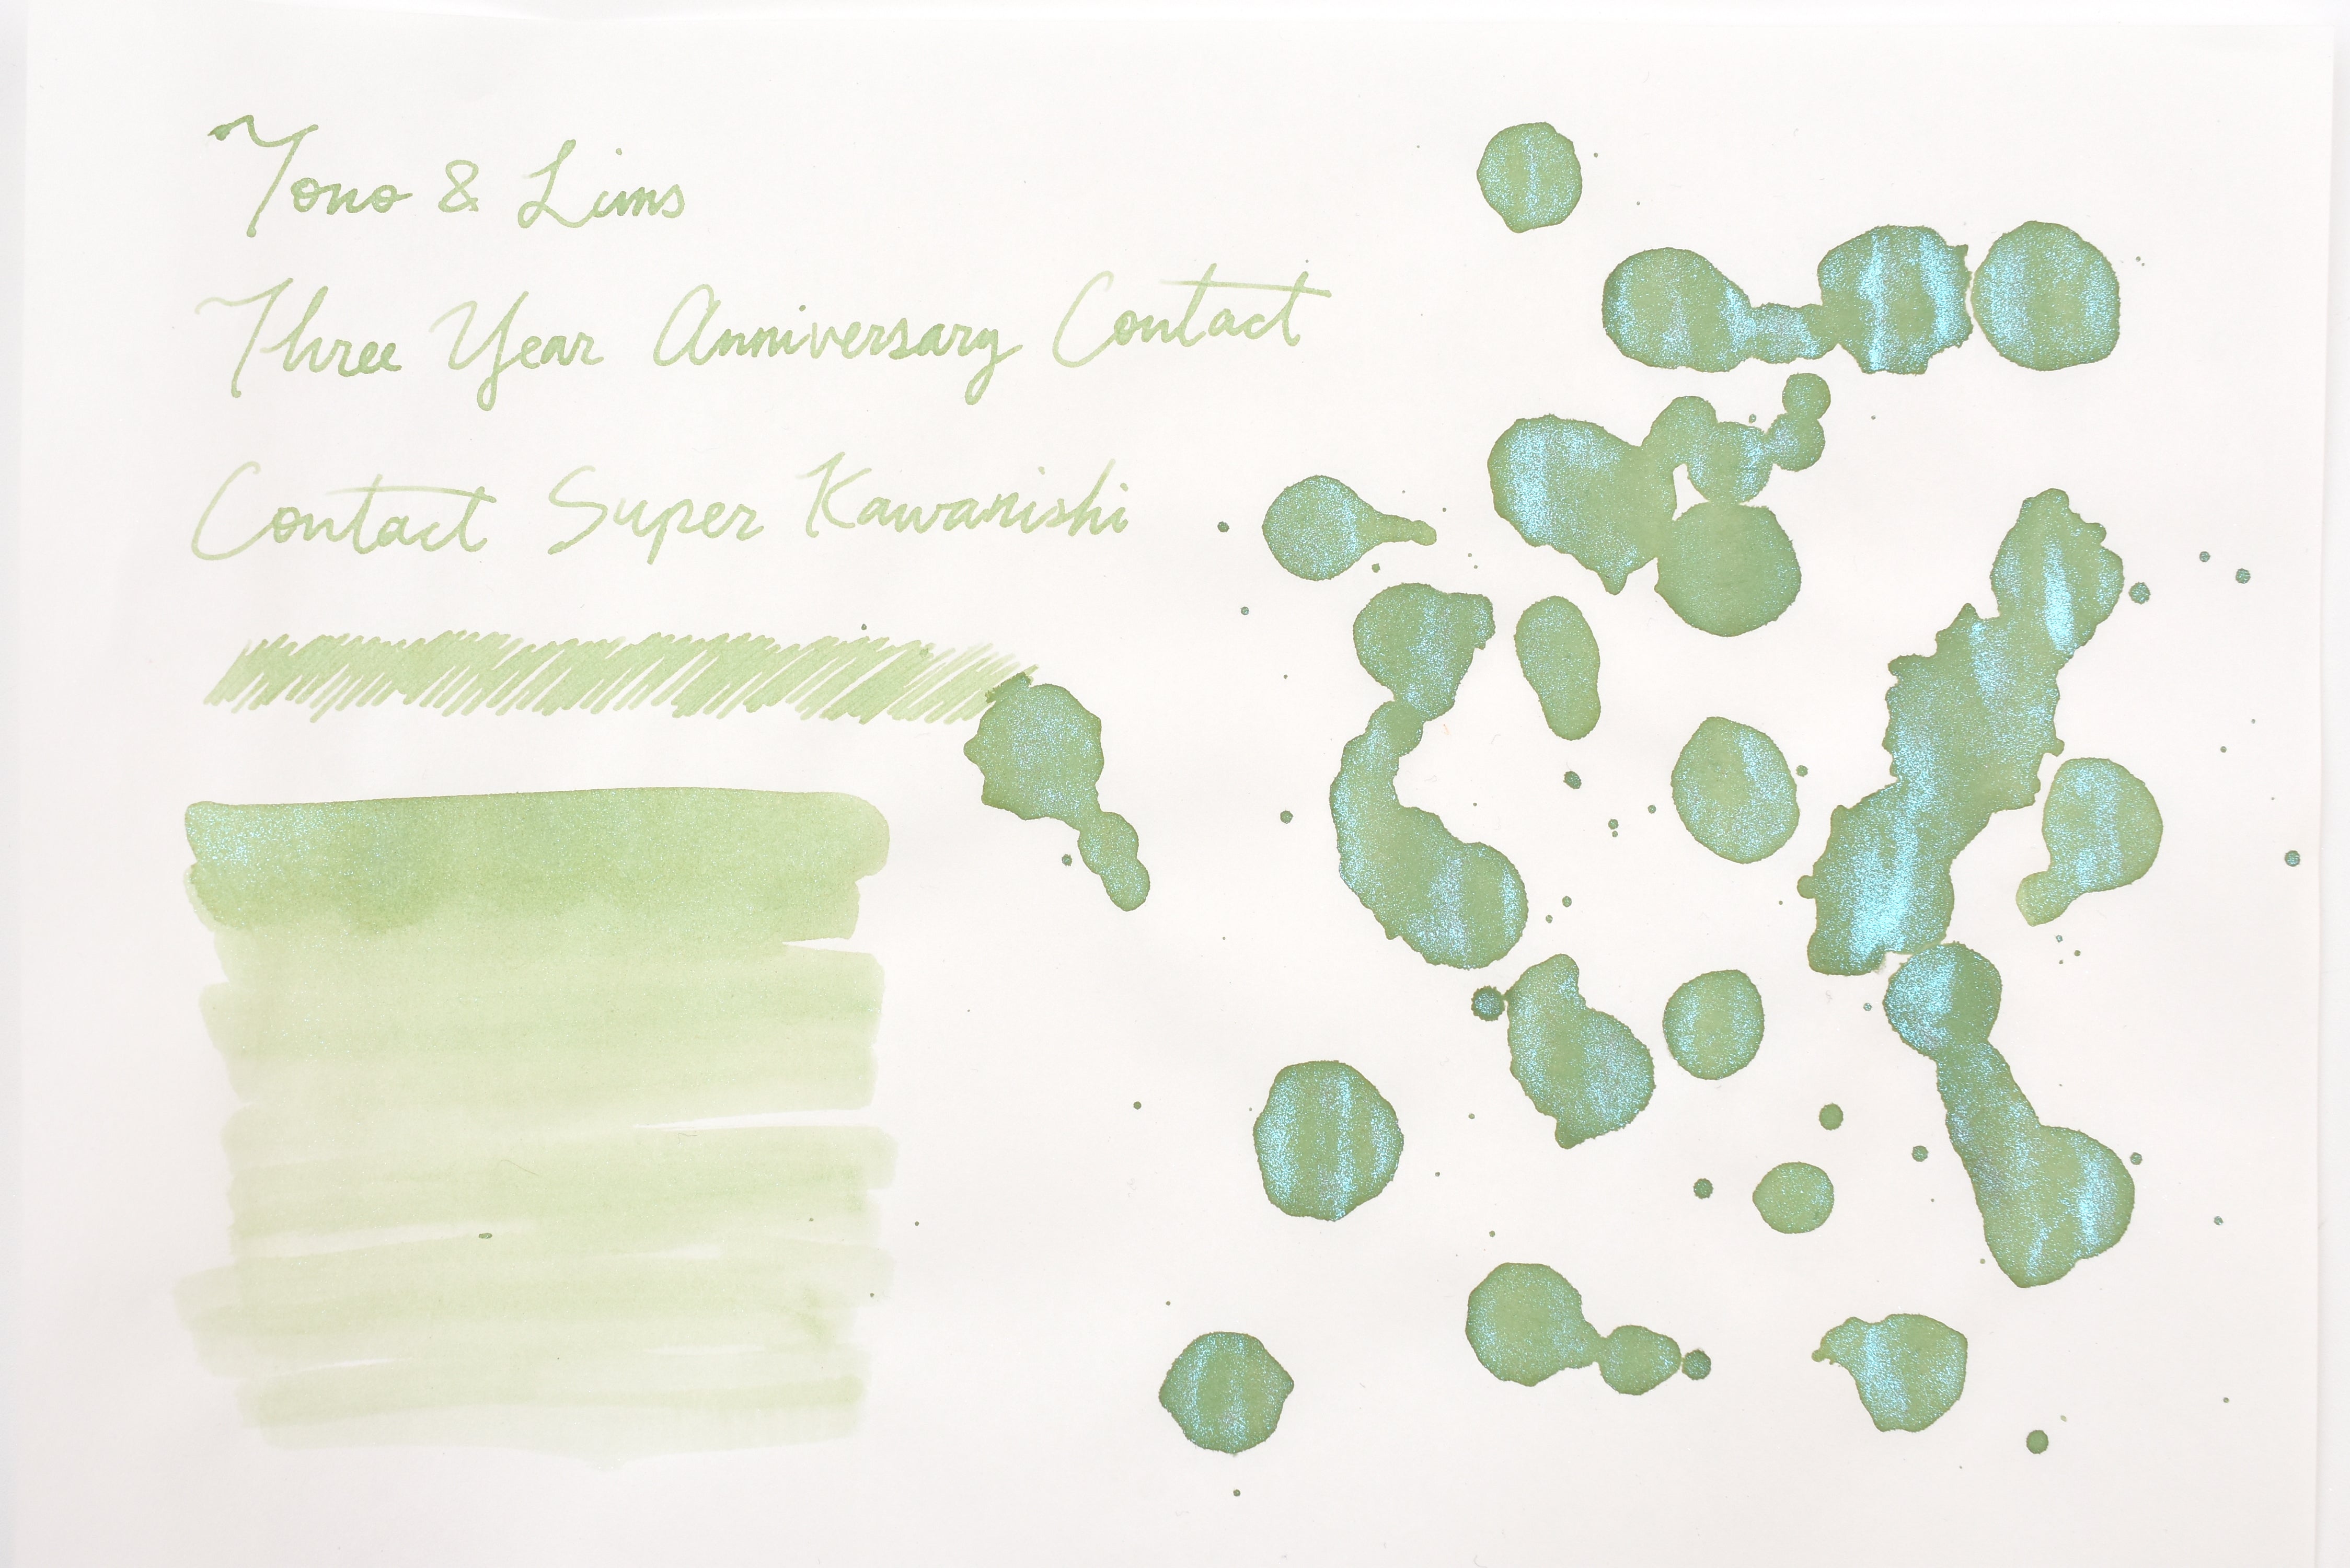 Tono & Lims
Three Year Anniversary Contact
Contact Super Kawanishi